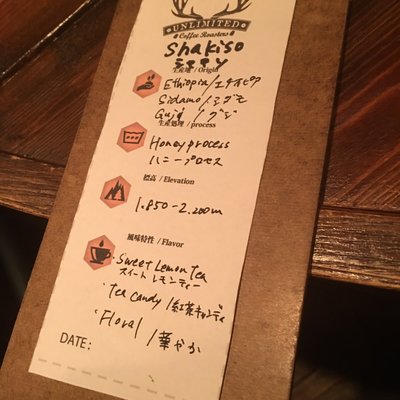 UNLIMITED
Coffee Roasters
Shakiso
シャキソ
生産地 / Origin
Ethiopia/エチオピア
Sidamo/シダモ
Guji /グジ
生産処理 / process
Honey process
ハニープロセス
標高 / Elevation
1.850-2.200m
風味特性 / Flavor
・Sweet Lemon tea
スイートレモンティー
・Tea candy /紅茶キャンディ
・Floral /華やか
DATE: